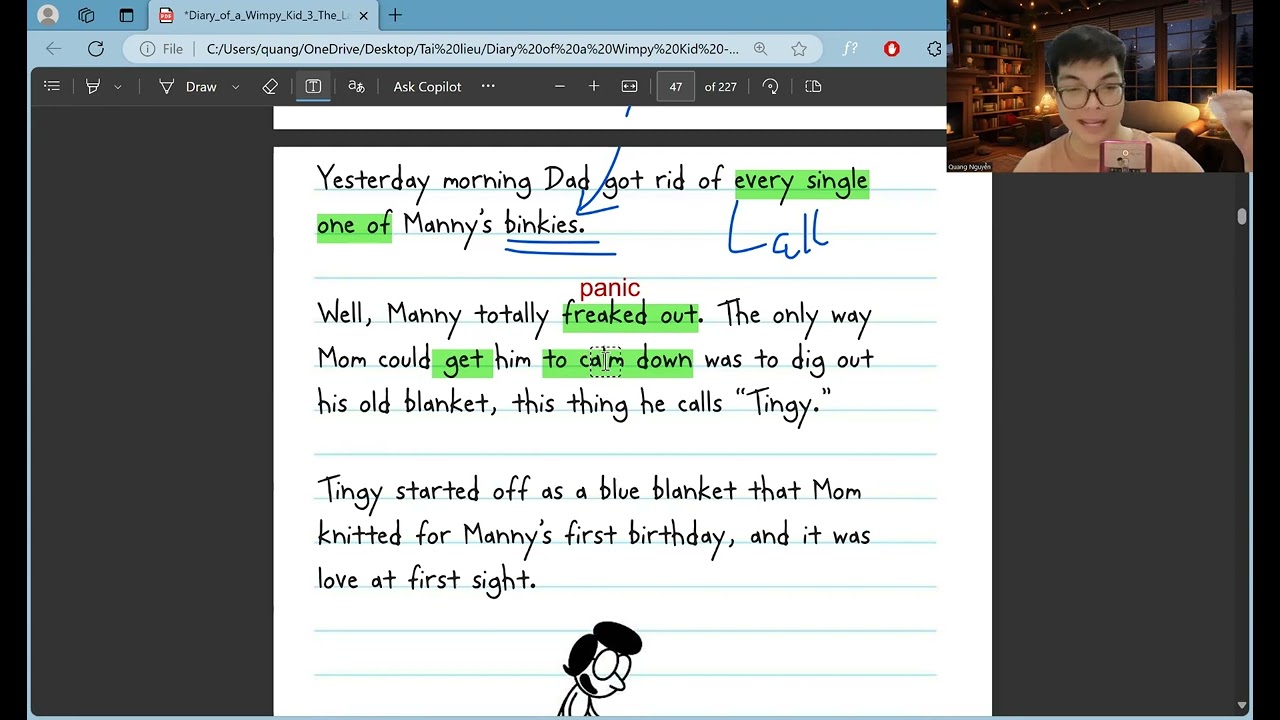 *Diary_of_a_Wimpy_Kid_3_The_La
File
C:/Users/quang/OneDrive/Desktop/Tai%20lieu/Diary%20of%20a%20Wimpy%20Kid%20-...
Draw
Ask Copilot
47 of 227
Quang Nguyễn
Yesterday morning Dad got rid of every single
one of Manny's binkies.
all
panic
Well, Manny totally freaked out. The only way
Mom could get him to calm down was to dig out
his old blanket, this thing he calls “Tingy.”
Tingy started off as a blue blanket that Mom
knitted for Manny's first birthday, and it was
love at first sight.